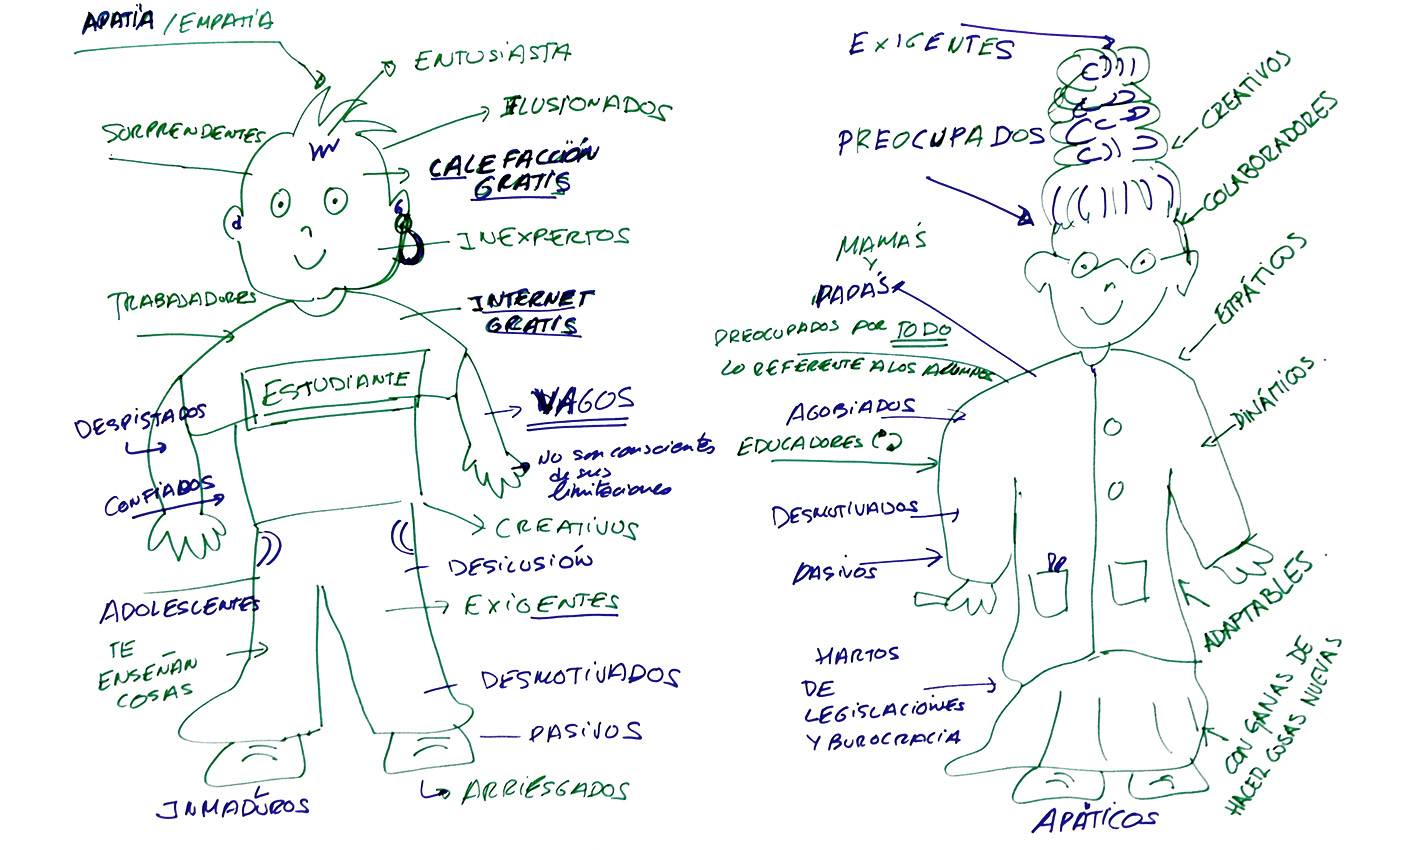 APATÍA / EMPATÍA
ENTUSIASTA
ILUSIONADOS
SORPRENDENTES
CALEFACCIÓN
GRATIS
INEXPERTOS
TRABAJADORES
INTERNET
GRATIS
ESTUDIANTE
VAGOS
DESPISTADOS
NO SON CONSCIENTES
de sus
limitaciones
CONFIADOS
CREATIVOS
DESILUSIÓN
ADOLESCENTES
EXIGENTES
TE
ENSEÑAN
COSAS
DESMOTIVADOS
PASIVOS
ARRIESGADOS
INMADUROS
EXIGENTES
PREOCUPADOS
CREATIVOS
COLABORADORES
MAMÁS
Y
PAPÁS
EMPÁTICOS
PREOCUPADOS POR TODO
LO REFERENTE A LOS ALUMNOS
AGOBIADOS
EDUCADORES
DINÁMICOS.
DESMOTIVADOS
PASIVOS
ADAPTABLES.
HARTOS
DE
LEGISLACIONES
Y BUROCRACIA
CON GANAS DE
HACER COSAS NUEVAS
APÁTICOS